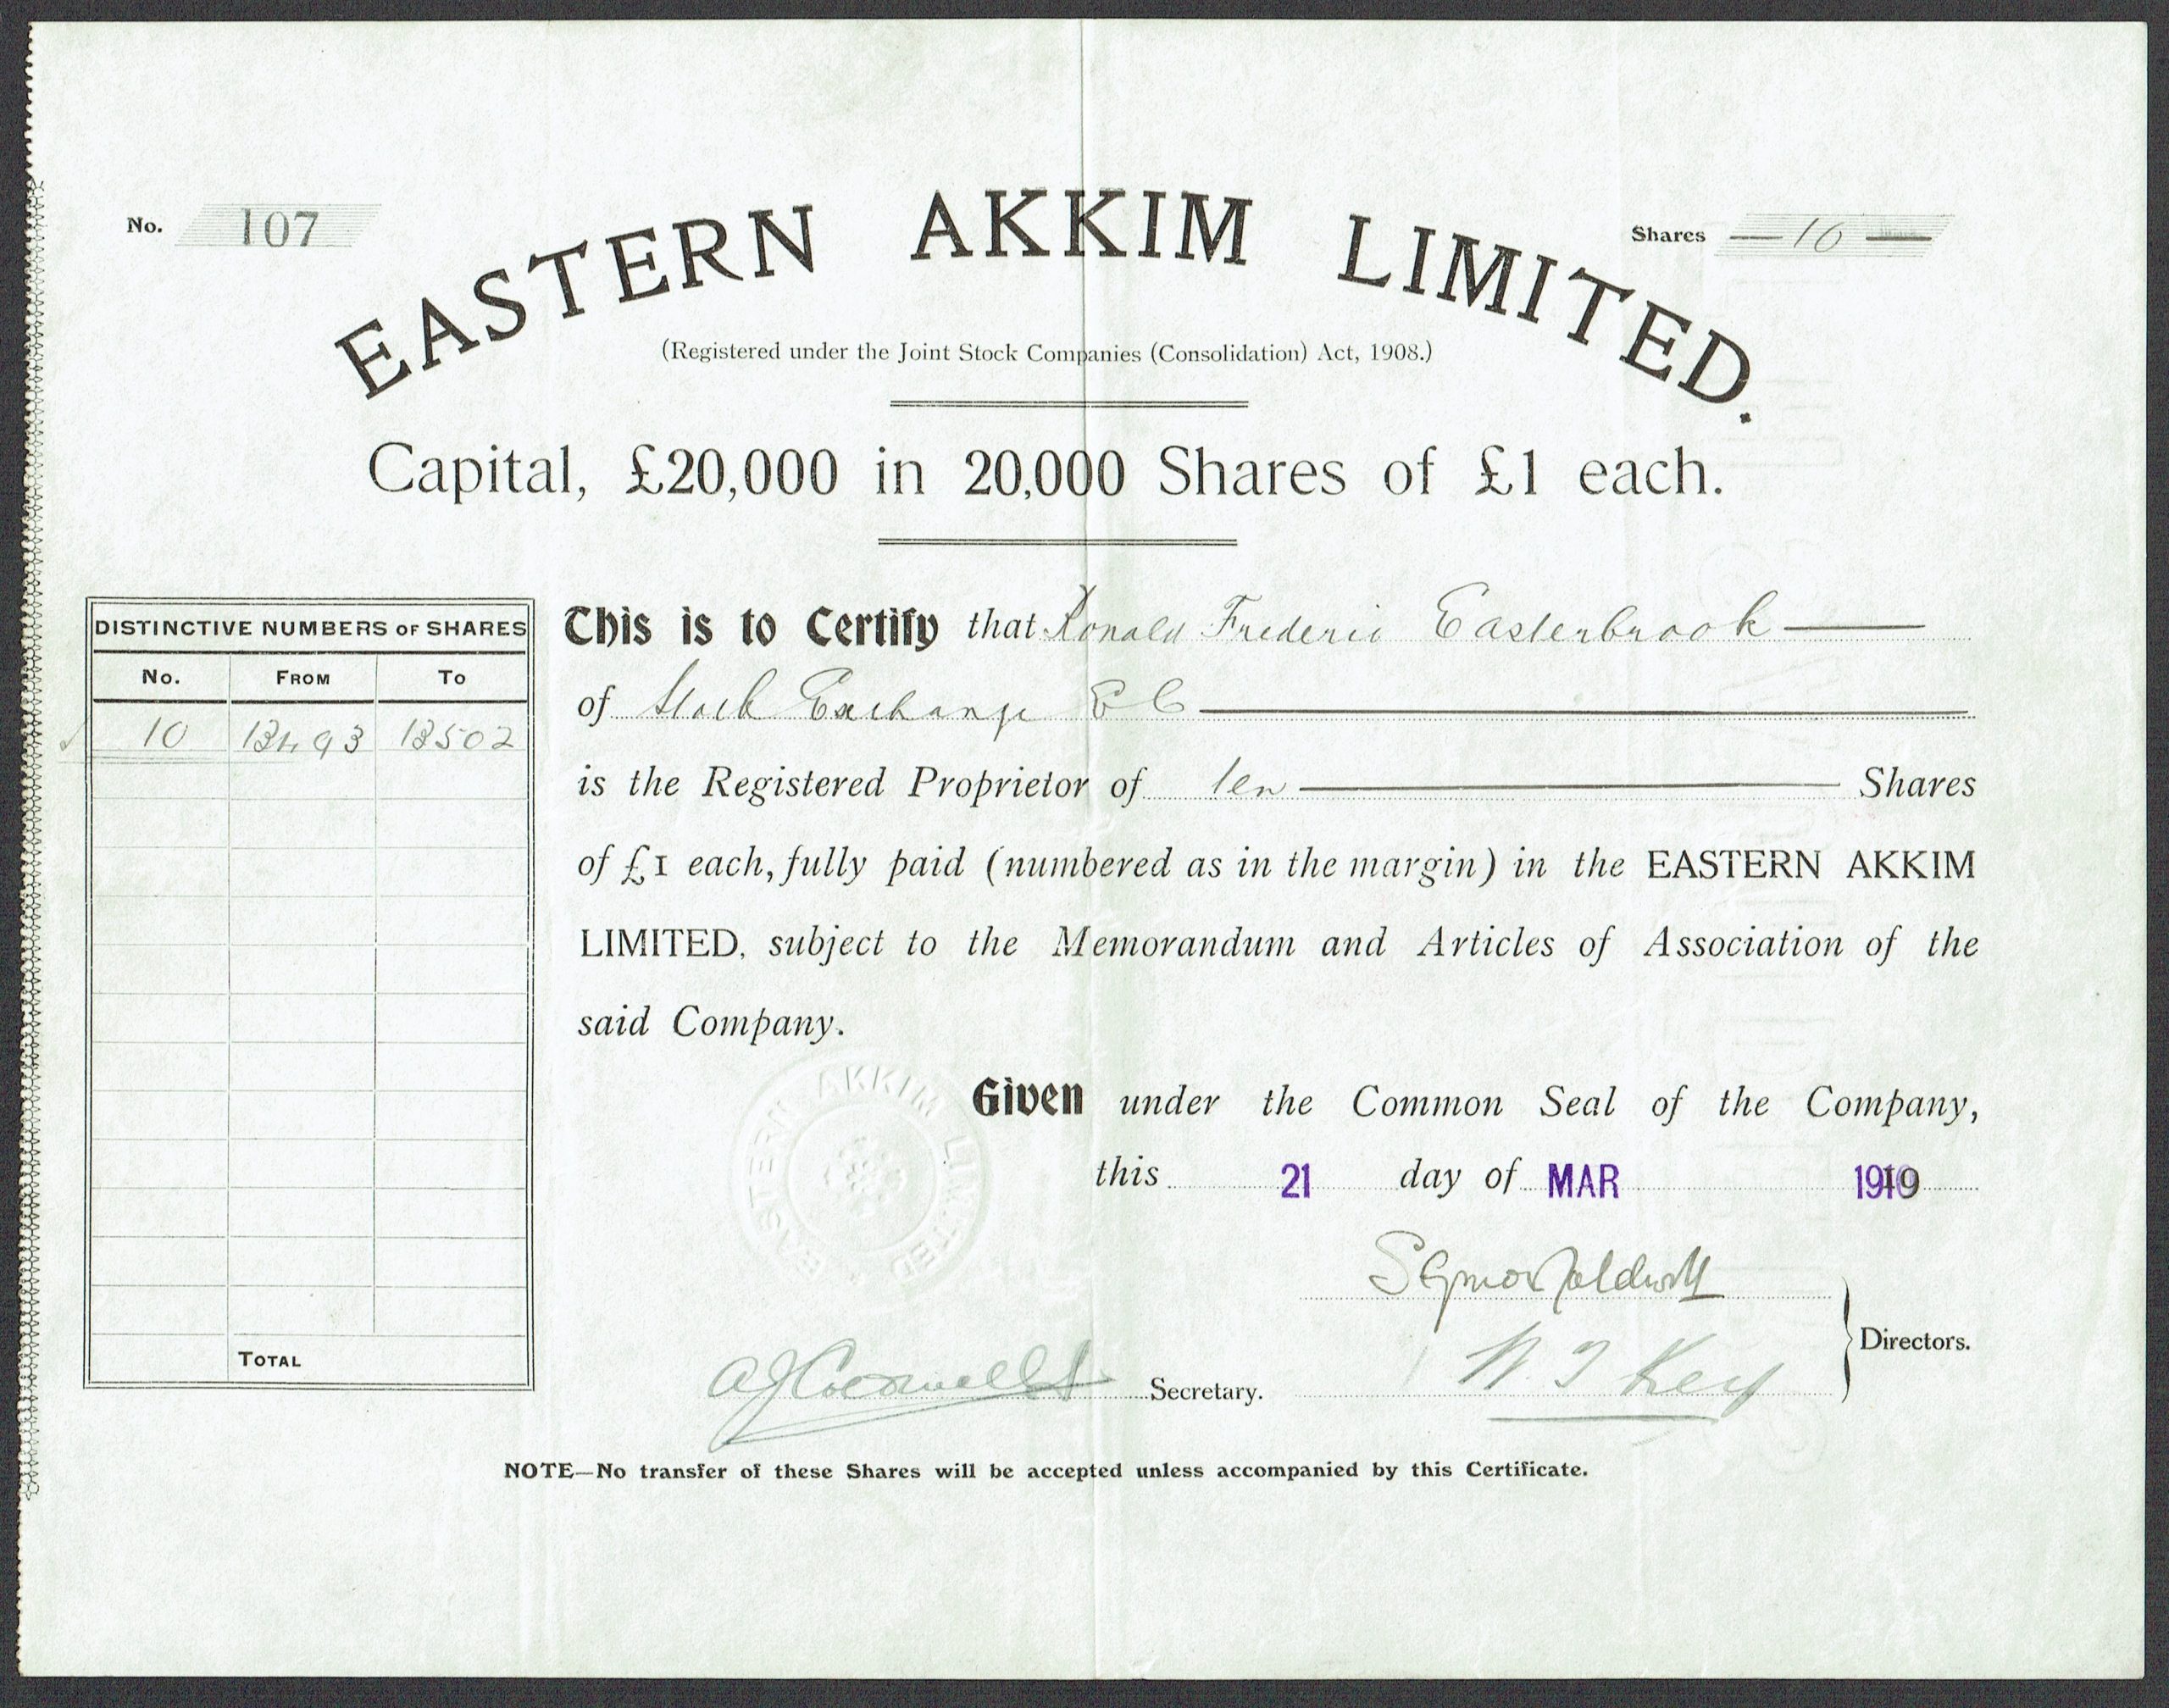 No. 107
EASTERN AKKIM LIMITED.
Shares 10
(Registered under the Joint Stock Companies (Consolidation) Act, 1908.)
Capital, £20,000 in 20,000 Shares of £1 each.
DISTINCTIVE NUMBERS OF SHARES
No. FROM TO
10 13493 13502
TOTAL
This is to Certify that Ronald Frederic Easterbrook
of Stock Exchange E C
is the Registered Proprietor of ten Shares
of £1 each, fully paid (numbered as in the margin) in the EASTERN AKKIM
LIMITED, subject to the Memorandum and Articles of Association of the
said Company.
Given under the Common Seal of the Company,
this 21 day of MAR
EASTERN AKKIM LIMITED
Key
Directors.
Secretary.
NOTE—No transfer of these Shares will be accepted unless accompanied by this Certificate.